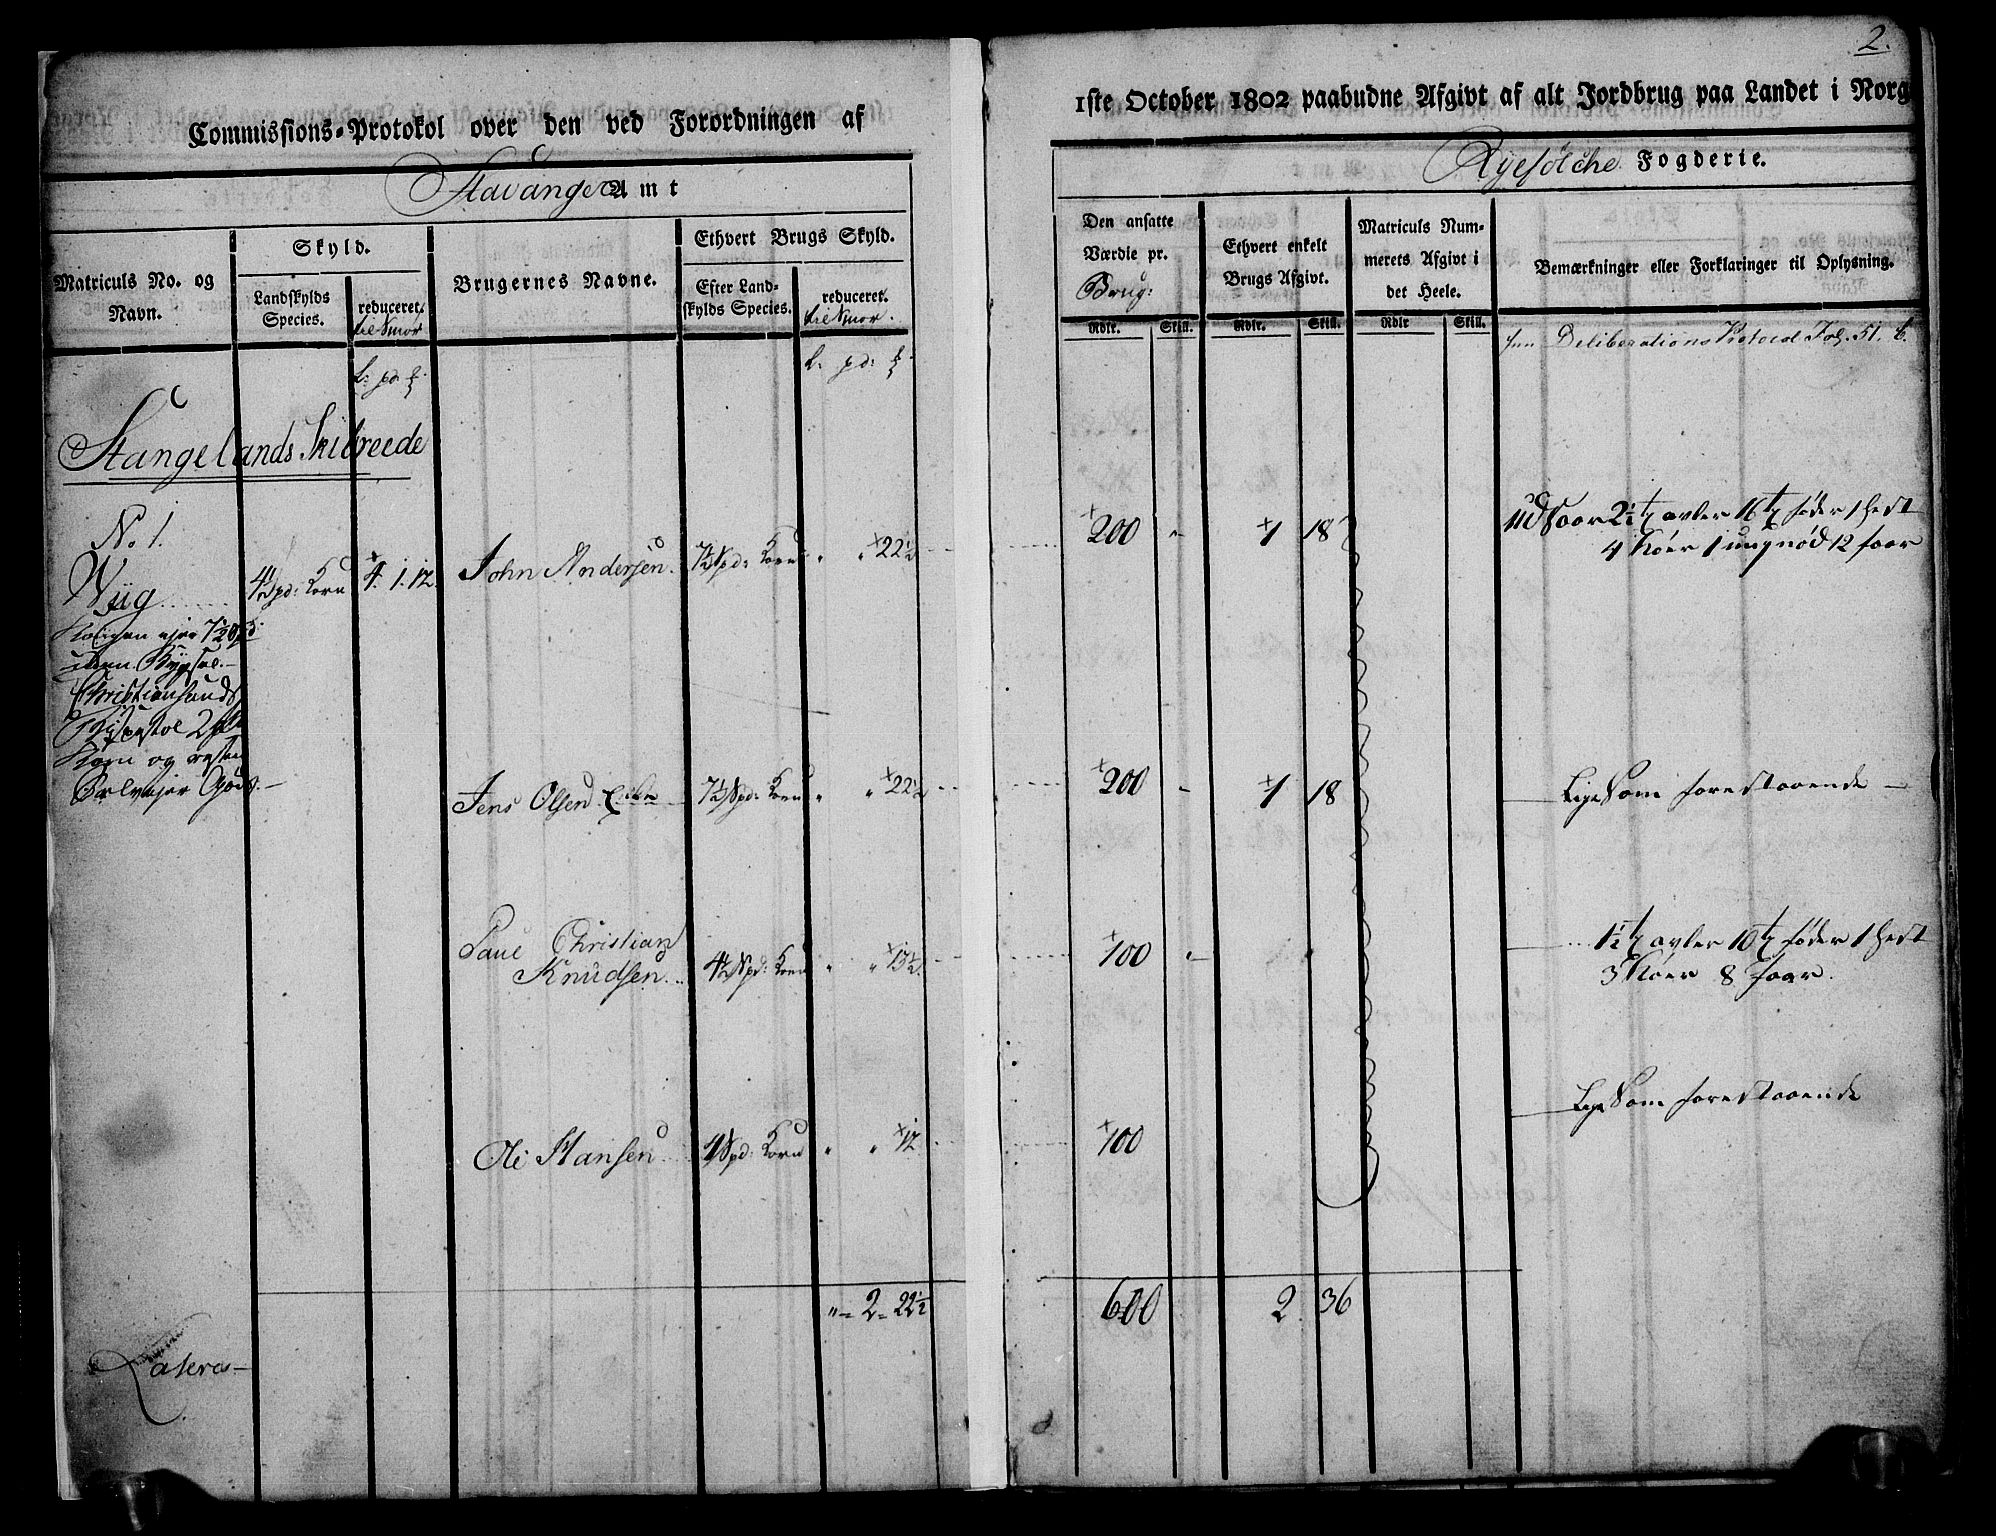 2.
Commissions-Protokol over den ved Forordningen af
1ste October 1802 paabudne Afgivt af alt Jordbrug paa Landet i Norg
Stavanger Amt
Ryefølche Fogderie.
Matriculs No. og Navn.
Skyld.
Landskylds Species.
reduceret. til Smør
Brugernes Navne.
Ethvert Brugs Skyld.
Efter Landskylds Species.
reduceret. til Smør.
Den ansatte Værdie pr. Brug:
Ethvert enkelt Brugs Afgivt.
Matriculs Nummerets Afgivt i det Heele.
Bemærkninger eller Forklaringer til Oplysning.
Rdlr. Skill. Rdlr. Skill. Rdlr Skill.
Deliberations Protocol Fol. 51. b.
Stangelands Skibreede
No. 1.
Wiig 4½ Spd: Korn 4. 1. 12. John Andersen. 7½ Spd: Korn " " 22½ 200 - 1 18 Udsaar 2½ tr avler 16 tr føder 1 hest
4 Køer 1 ungnød 12 faar
Kongen ejer 7½ Spd:
Korn Bygsel.
Christiansands
Bispestol 2
Korn og resten
Selvejer Gods.
Jens Olsen 7½ Spd: Korn " " 22½ 200 - 1 18 Lige Som forestaaende
Paul Christian
Knudsen 4½ Spd: Korn " " 13½ 100 - " 1½ tr avler 10 tr føder 1 hest
3 Køer 8 faar.
Ole Hansen 4 Spd: Korn " " 12 100 Lige Som forestaaende
" - 2 - 22½ 600 2 36
Lateres